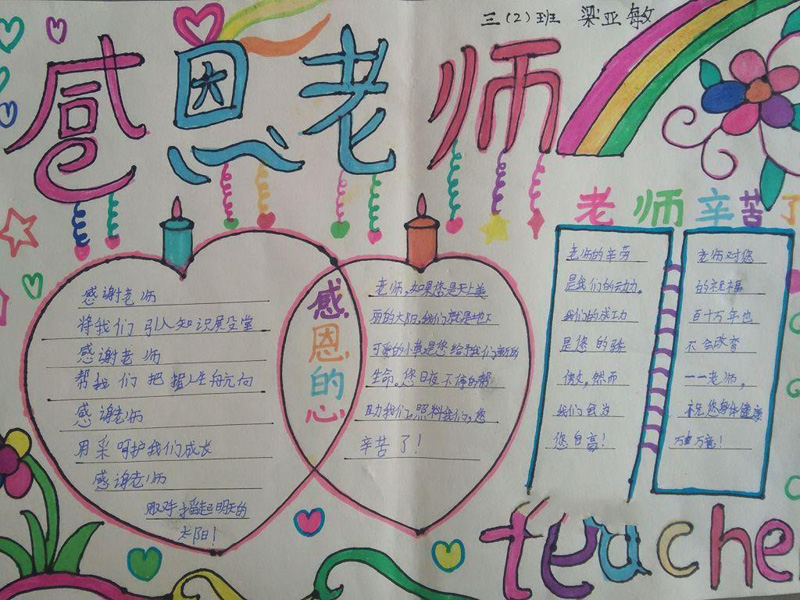 三(2)班 梁亚敏
感恩老师
老师辛苦了
感谢老师
将我们引入知识展览堂
感谢老师
帮我们把握人生航向
感谢老师
用采呵护我们成长
感谢老师
双手擎起明天的
太阳!
感恩的心
老师,如果您是天上美
丽的太阳,我们就是地下
可爱的小草,是您给予我们新的
生命,您日夜不停的帮
助我们,照料我们,您
辛苦了!
老师的辛劳
是我们的动力,
我们的成功
是您的骄
傲,然而
我们also为
您自豪!
老师对您
的祝福
百十万年也
不会改变
一一老师,
祝您身体健康
万事
teache